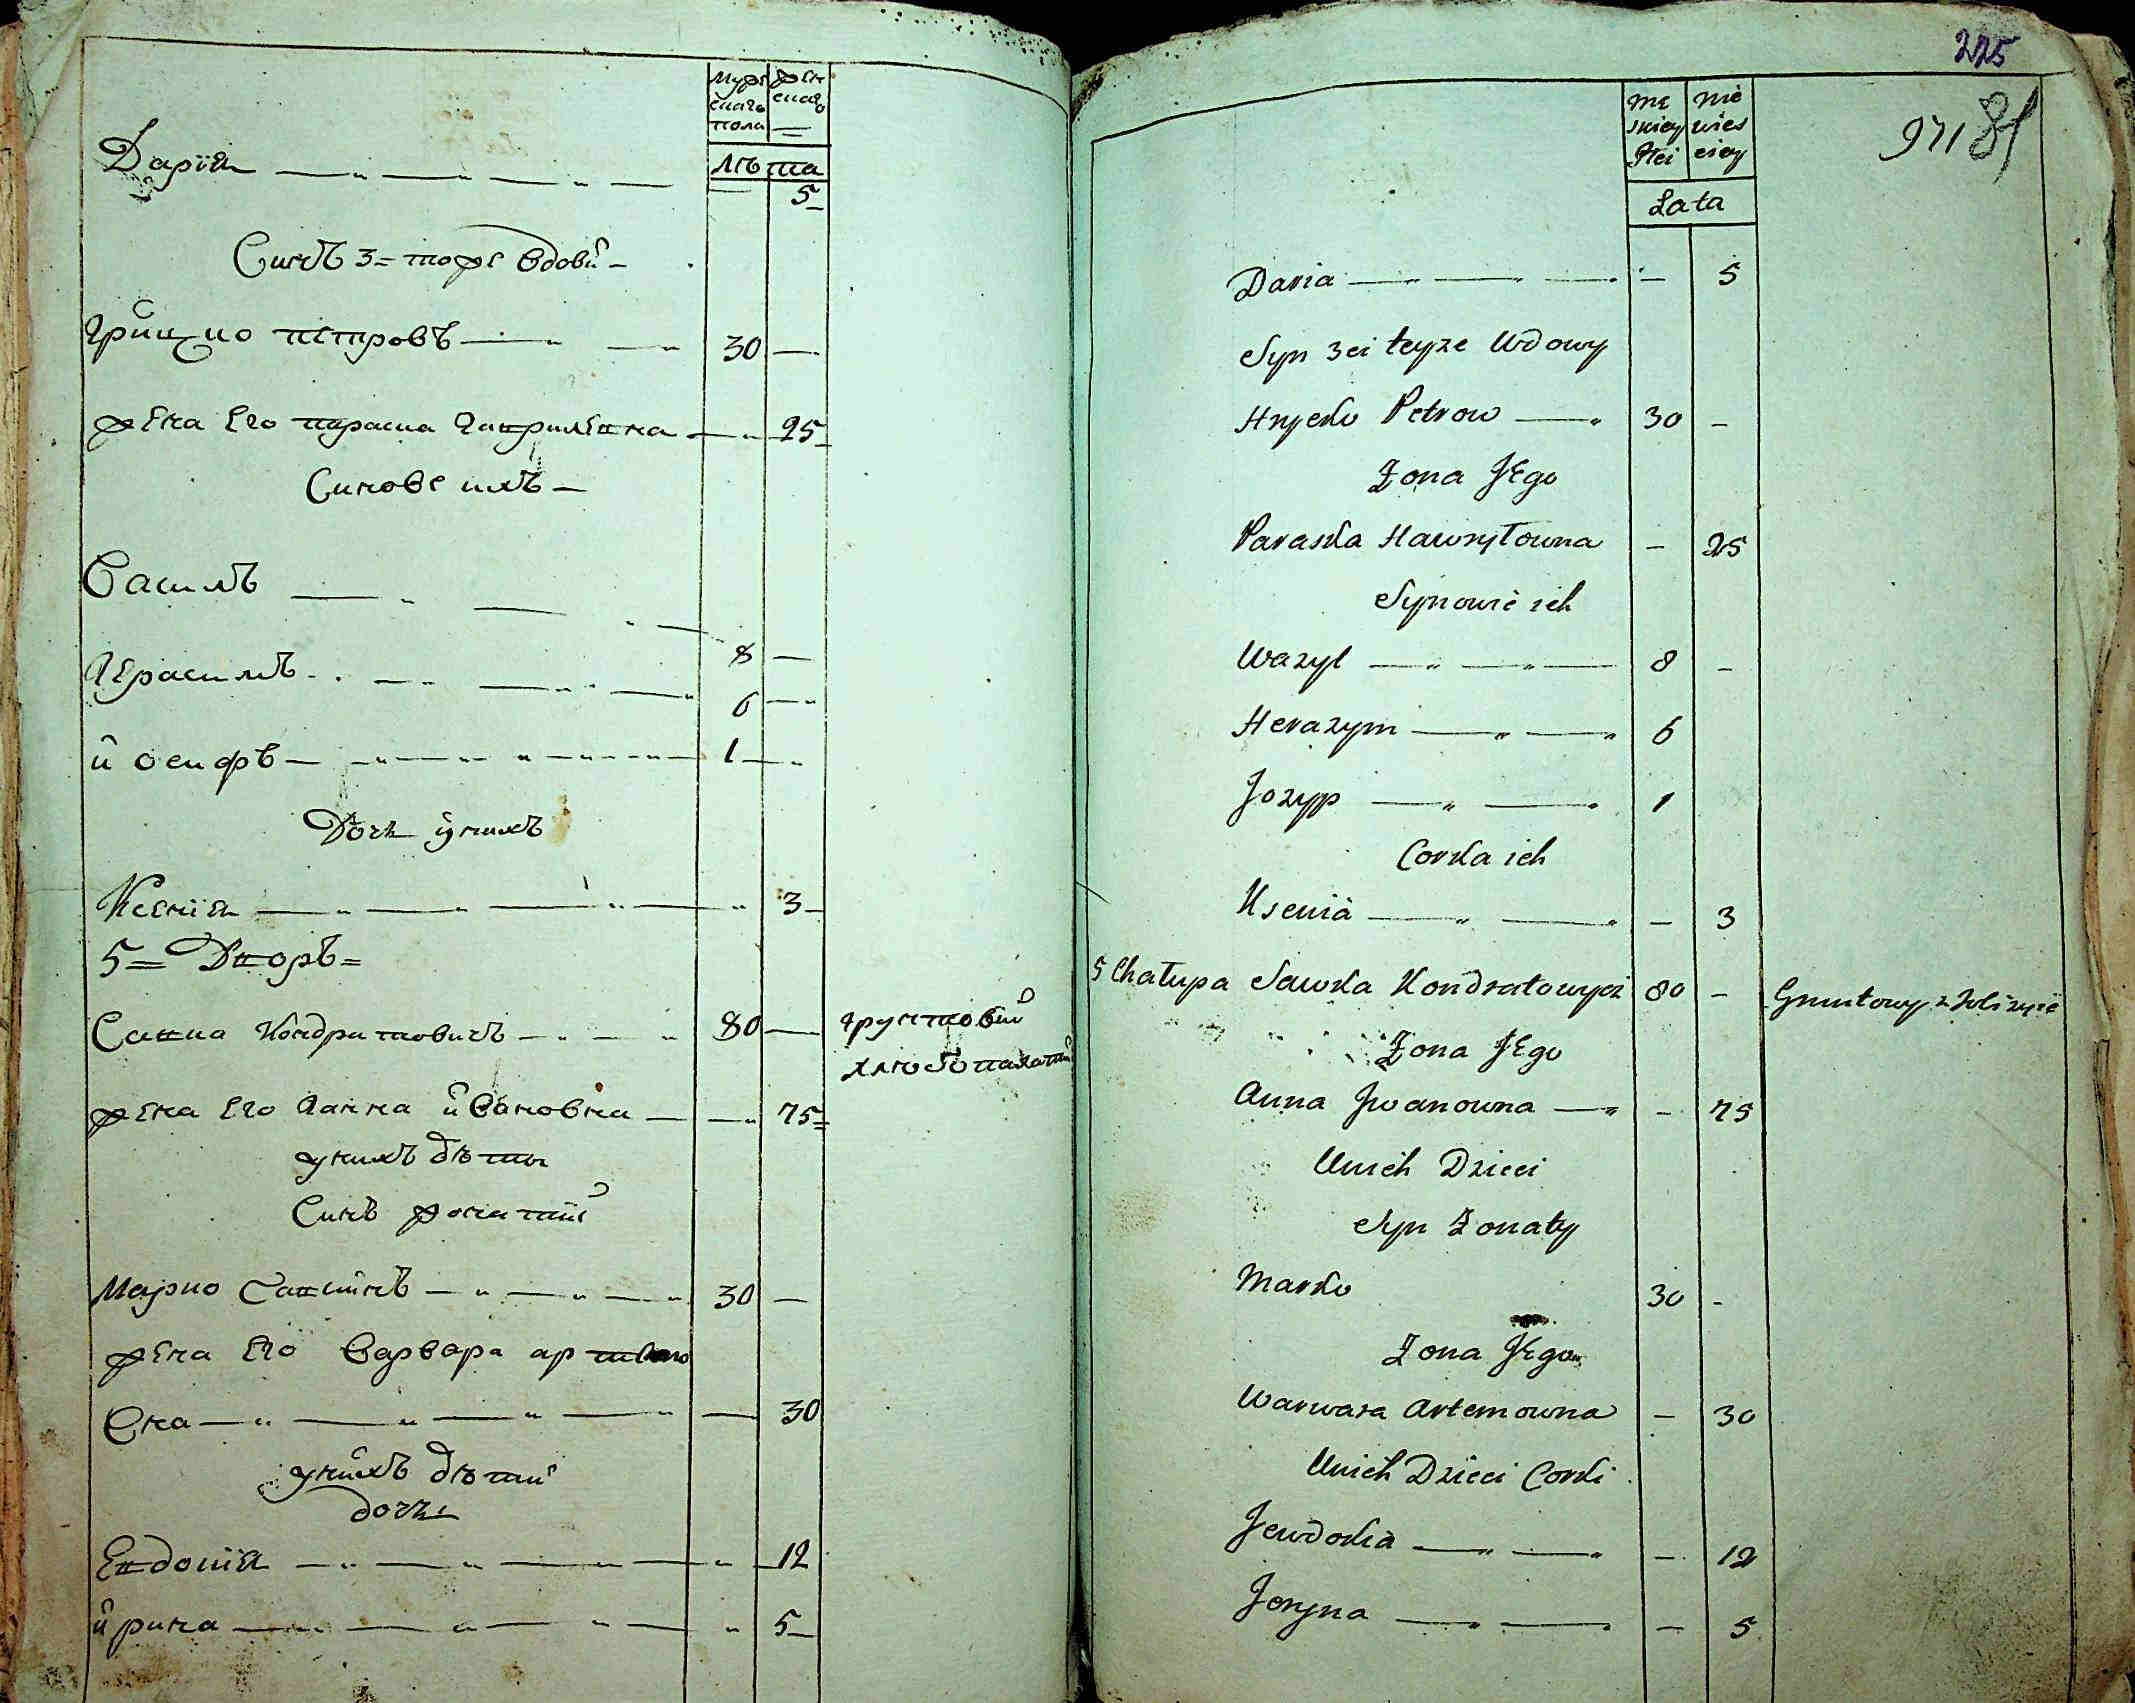 Мужескаго пола
женскаго
лѣта
Дарія — 5
Синъ 3 = тоже вдови
Грицко петровъ — 30 —
жена его параска Гаврилѣвна — 25
Синове ихъ
Василь — 8 —
Герасимъ — 6 —
йосифъ — 1 —
Дочь у нихъ
Ксенія — 3
5 = Дворъ =
Савка Кондратовичъ — 80 — грунтовий
хлѣбопахатній
жена его Ганна йвановна — 75
у нихъ дѣти
Синъ жонатій
Марко Савкинъ — 30 —
жена его Варвара артемо
вна — 30
у нихъ дѣти
дочки
Евдокія — 12
йрина — 5
225
971 81
Męskiey Płci
Niewiesciey
Lata
Daria — 5
Syn 3ci teyże Wdowy
Hryćko Petrow — 30 —
Żona Jego
Paraska Hawryłowna — 25
Synowie ich
Wazyl — 8 —
Herazym — 6
Jozyp — 1
Corka ich
Ksenia — 3
5 Chałupa Sawka Kondratowycz 80 — Gruntowy z Roli żyie
Żona Jego
Anna Jwanowna — 75
Unich Dzieci
Syn Żonaty
Marko 30 -
Żona Jego
Warwara Artemowna — 30
Unich Dzieci Corki
Jewdokia — 12
Joryna — 5